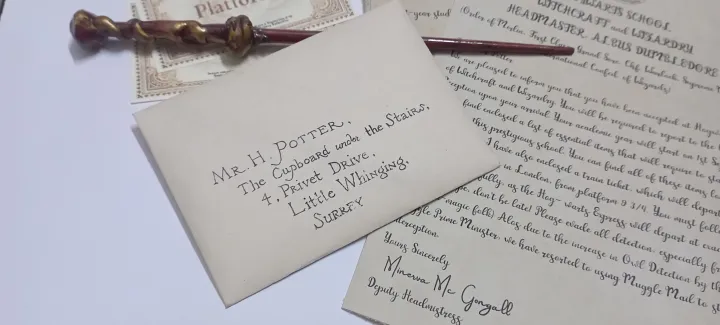 Platfo
MR. H. POTTER,
The Cupboard under the Stairs,
4, Privet Drive,
Little Whinging,
SURREY
WARTS SCHOOL
WITCHCRAFT and WIZARDRY
HEADMASTER: ALBUS DUMBLEDORE
(Order of Merlin, First Class, Grand Sorc, Chf. Warlock, Supreme
International Confed. of Wizards)
Potter
We are pleased to inform you that you have been accepted at Hogw
of Witchcraft and Wizardry. You will be required to report to the
ception upon your arrival. Your academic year will start on 1st S
find enclosed a list of essential items that will require to st
this prestigious school. You can find all of these items lo
I have also enclosed a train ticket, which will depar
in London, from platform 9 3/4. You must foll
fully, as the Hog-warts Express will depart at exac
e, don't be late! Please evade all detection, especially fr
magic folk) Alas due to the increase in Owl Detection by th
uggle Prime Minister, we have resorted to using Muggle Mail to st
terception.
Yours Sincerely
Minerva Mc Gongall
Deputy Headmistress